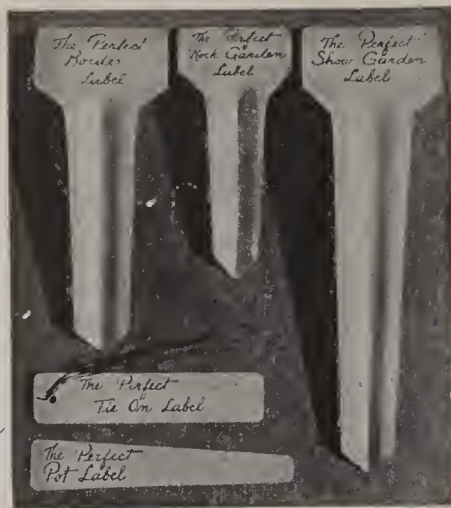 The "Perfect"
Border
Label
The "Perfect"
Rock Garden
Label
The "Perfect"
Show Garden
Label
The "Perfect"
Tie On Label
The "Perfect"
Pot Label